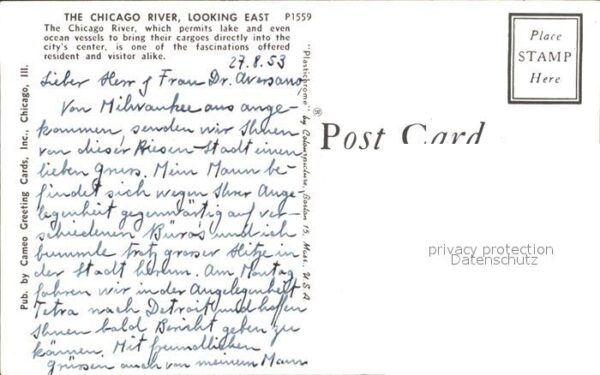 THE CHICAGO RIVER, LOOKING EAST P1559
The Chicago River, which permits lake and even
ocean vessels to bring their cargoes directly into the
city's center, is one of the fascinations offered
resident and visitor alike.
27.8.53
Lieber Herr & Frau Dr. Aversano,
Von Milwaukee aus ange-
kommen, senden wir Ihnen
von dieser Riesen-Stadt einen
lieben Gruss. Mein Mann be-
findet sich wegen Ihrer Ange-
legenheit gegenwärtig auf ver-
schiedenen Büros und ich
bummle trotz grosser Hitze in
der Stadt herum. Am Montag
fahren wir in der Angelegenheit
Tetra nach Detroit und hoffen
Ihnen bald Bericht geben zu
können. Mit freundlichen
Grüssen auch von meinem Mann
Pub. by Cameo Greeting Cards, Inc., Chicago, Ill.
"Plastichrome" ® by Colourpicture, Boston 15, Mass. U.S.A.
Place
STAMP
Here
Post Card
privacy protection
Datenschutz